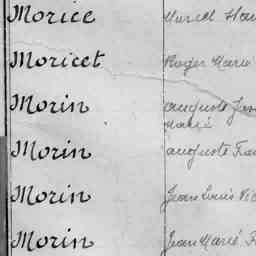 Morice Marcel
Moricet Roger Marie
Morin auguste
Marie
Morin auguste
Morin Jean Louis
Morin Jean Marie